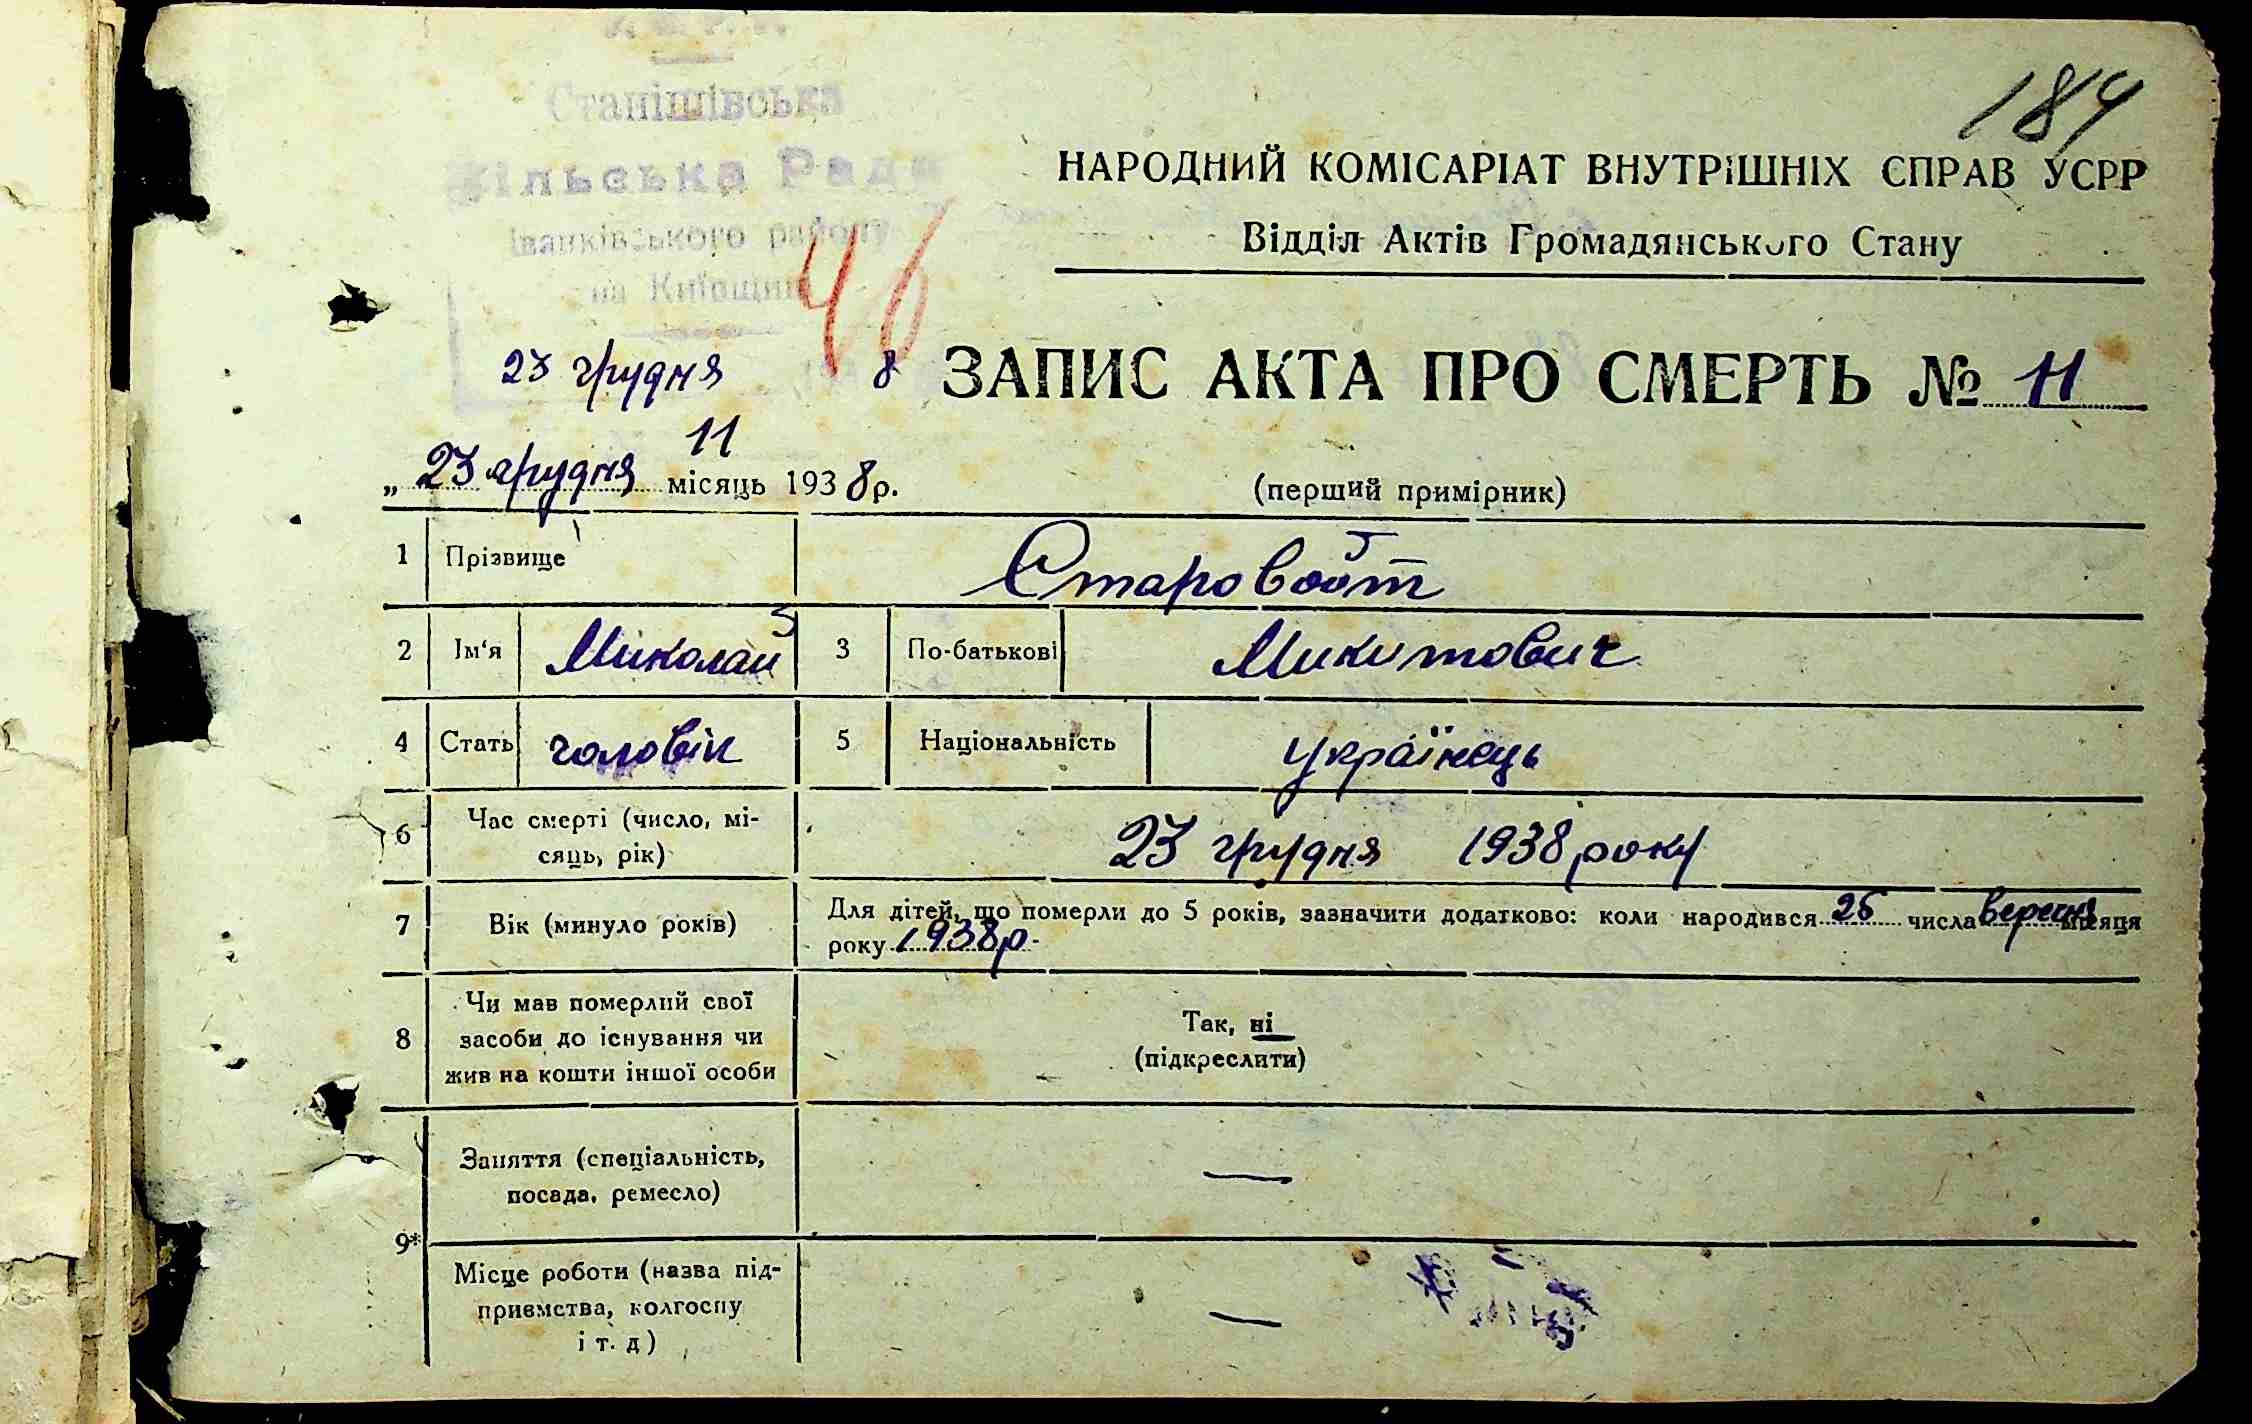 184
Станішівська
Сільська Рада
Іванківського району
на Київщині
46
НАРОДНИЙ КОМІСАРІАТ ВНУТРІШНІХ СПРАВ УСРР
Відділ Актів Громадянського Стану
23 грудня 8
ЗАПИС АКТА ПРО СМЕРТЬ № 11
11
„ 23 грудня місяць 1938 р.
(перший примірник)
1 Прізвище Старовойт
2 Ім'я Миколай 3 По-батькові Микитович
4 Стать чоловік 5 Національність українець
6 Час смерті (число, мі-
сяць, рік) 23 грудня 1938 року
7 Вік (минуло років) Для дітей, що померли до 5 років, зазначити додатково: коли народився 25 числа вересня місяця
року 1938 р.
8 Чи мав померлий свої
засоби до існування чи
жив на кошти іншої особи
Так, ні
(підкреслити)
9*
Заняття (спеціальність,
посада, ремесло) —
Місце роботи (назва під-
приємства, колгоспу
і т. д) —